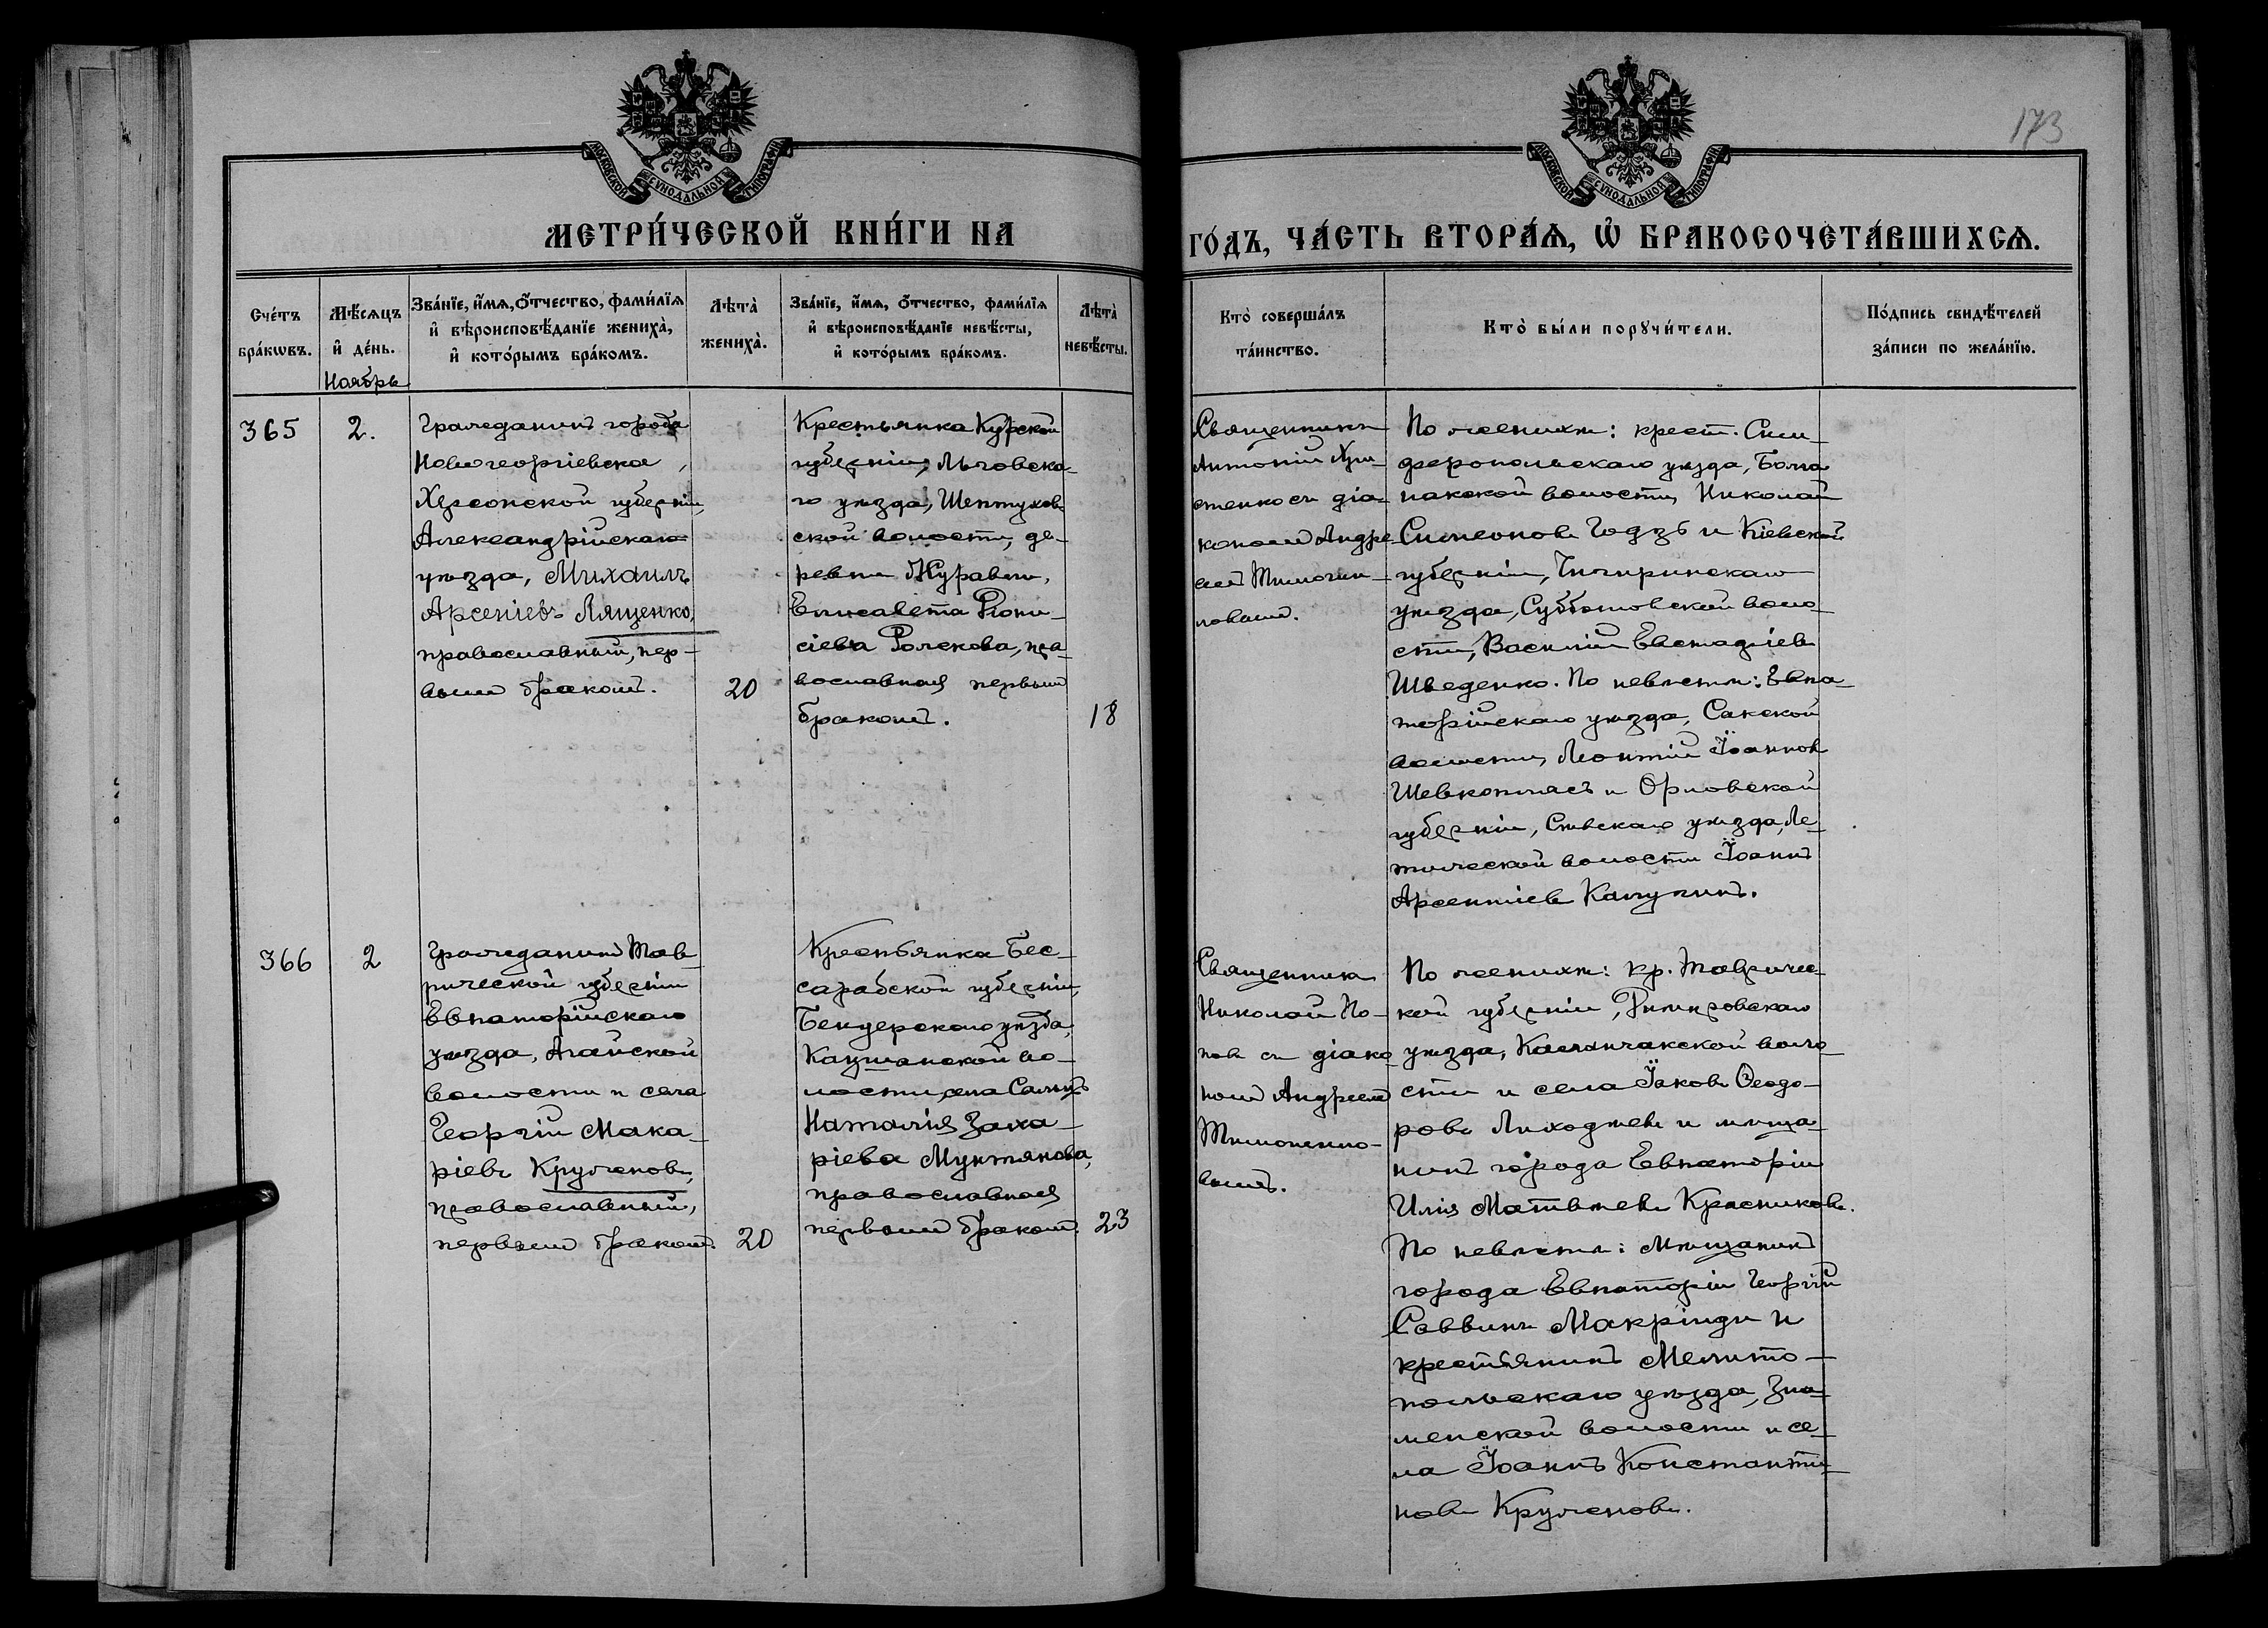 173
МОСКОВСКОЙ СѴНОДАЛЬНОЙ ТИПОГРАФІИ
МОСКОВСКОЙ СѴНОДАЛЬНОЙ ТИПОГРАФІИ
МЕТРИ́ЧЕСКОЙ КНИ́ГИ НА
ГО́ДЪ, ЧА́СТЬ ВТОРА́Ѧ, Ѡ҆ БРАКОСОЧЕТА́ВШИХСѦ.
Сче́тъ
бра́кѡвъ.
Мѣ́сяцъ
и҆ де́нь.
Ноябрь
Зва́нїе, и҆́мя, ѻ҆́тчество, фами́лїя
и҆ вѣроисповѣ́данїе жениха̀,
и҆ кото́рымъ бра́комъ.
Лѣта̀
жениха̀.
Зва́нїе, и҆́мя, ѻ҆́тчество, фами́лїя
и҆ вѣроисповѣ́данїе невѣ́сты,
и҆ кото́рымъ бра́комъ.
Лѣта̀
невѣ́сты.
Кто̀ соверша́лъ
та́инство.
Кто̀ бы́ли порꙋчи́тели.
По́дпись свидѣ́телей
за́писи по жела́нїю.
365
2.
Гражданинъ города
Новогеоргіевска,
Херсонской губерніи,
Александрійскаго
уѣзда, Михаилъ
Арсеніевъ Лященко,
православный, пер-
вымъ бракомъ.
20
Крестьянка Курской
губерніи, Льговска-
го уѣзда, Шептухов-
ской волости, де-
ревни Журавли,
Елисавета Діони-
сіева Ролекова, пра-
вославная первымъ
бракомъ.
18
Священникъ
Антоній
съ діа-
кономъ Андре-
емъ Тимоѳи-
ловымъ.
По женихѣ: крест. Сим-
феропольскаго уѣзда, Болга
накской волости, Николай
Симеоновъ Годзь и Кіевской
губерніи, Чигиринскаго
уѣзда, Субботовской воло-
сти, Василій Евстафіевъ
Шведенко. По невѣстѣ: Евпа-
торійскаго уѣзда, Сакской
волости, Леонтій Іоанновъ
Шевкоплясъ и Орловской
губерніи, Сѣвскаго уѣзда, Ле-
тической волости Іоаннъ
Арсентіевъ Калугинъ.
366
2
Гражданинъ Тав-
рической губерніи
Евпаторійскаго
уѣзда, Агайской
волости и села
Георгій Мака-
ріевъ Крученовъ,
православный,
первымъ бракомъ.
20
Крестьянка Бес-
сарабской губерніи,
Бендерскаго уѣзда,
Каушанской во-
лости, села
Наталія Заха-
ріева Мунтянова,
православная
первымъ бракомъ.
23
Священникъ
Николай По-
повъ съ діако-
номъ Андреемъ
Тимоненко-
вымъ.
По женихѣ: кр. Тавричес-
кой губерніи, Днѣпровскаго
уѣзда, Каланчакской воло-
сти и села Іаковъ Ѳеодо-
ровъ Лиходѣевъ и мѣща-
нинъ города Евпаторіи
Илія Матвѣевъ Красниковъ.
По невѣстѣ: Мѣщанинъ
города Евпаторіи Георгій
Саввинъ Макриди и
крестьянинъ Мелито-
польскаго уѣзда, Зна-
менской волости и се-
ла Іоаннъ Константи-
новъ Крученовъ.